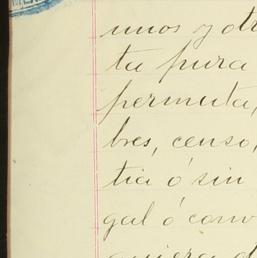 unos y otr
ta pura
permuta,
bres, censo,
tia ó sin
gal ó conv
quiera d